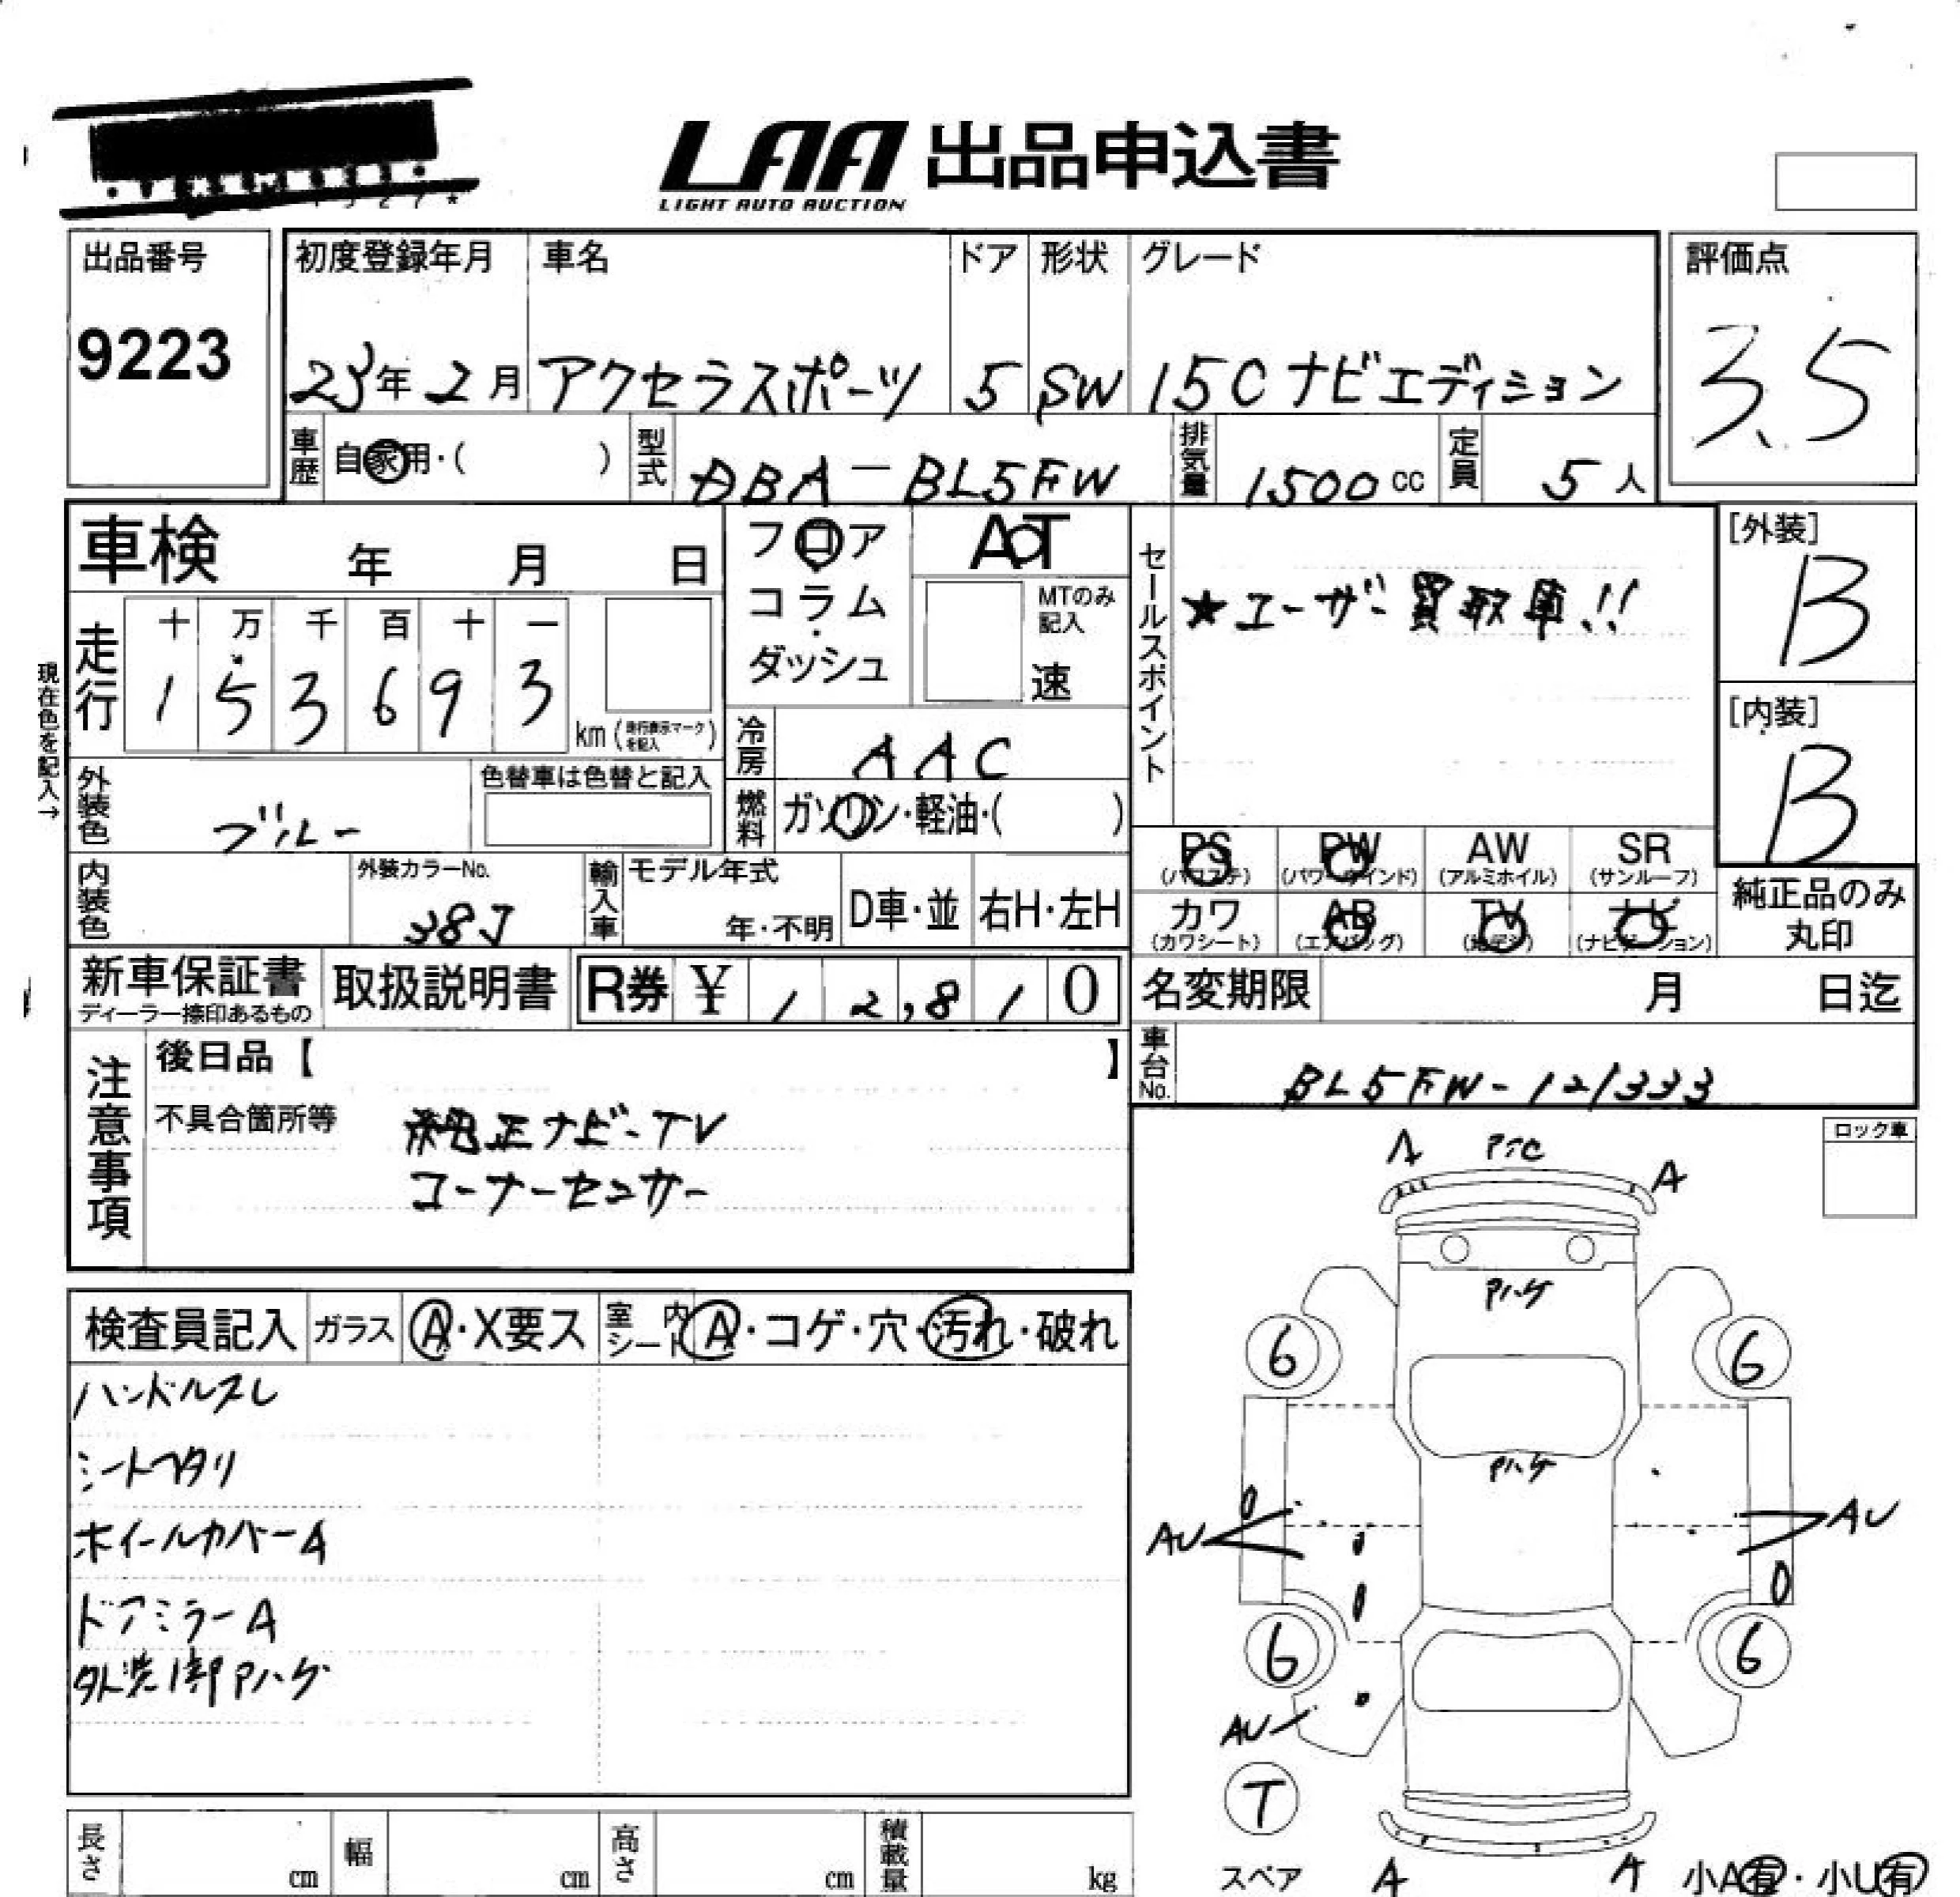 LAA 出品申込書
LIGHT AUTO AUCTION
出品番号
9223
初度登録年月
23年2月
車名
アクセラスポーツ
ドア
5
形状
SW
グレード
15Cナビエディション
評価点
3.5
車歴 自家用・( )
型式 DBA-BL5FW
排気量 1500cc
定員 5人
車検 年 月 日
フロア
コラム
・
ダッシュ
AT
MTのみ
記入
速
セールスポイント
★ユーザー買取車!!
[外装]
B
[内装]
B
現在色を記入→
走行
十 万 千 百 十 一
1 5 3 6 9 3
km(走行表示マークを記入)
冷房 AAC
外装色 ブルー
色替車は色替と記入
燃料 ガソリン・軽油・( )
PS
(パワステ)
PW
(パワーウインド)
AW
(アルミホイル)
SR
(サンルーフ)
カワ
(カワシート)
AB
(エアバッグ)
TV
(地デジ)
ナビ
(ナビゲーション)
純正品のみ
丸印
内装色
外装カラーNo.
38J
輸入車
モデル年式
年・不明
D車・並
右H・左H
新車保証書
ディーラー捺印あるもの
取扱説明書
R券 ¥ 12,810
名変期限 月 日迄
車台No. BL5FW-121333
注意事項
後日品【 】
不具合箇所等
純正ナビ-TV
コーナーセンサー
ロック車
検査員記入
ガラス Ⓐ・X要ス
室内シート A・コゲ・穴・汚れ・破れ
ハンドルスレ
シートヘタリ
ホイールカバーA
ドアミラーA
外装1部Pハゲ
A
A
Pハゲ
6
6
Pハゲ
AU
AU
6
6
AU
T
スペア
A
A
小A有・小U有
長さ cm
幅 cm
高さ cm
積載量 kg